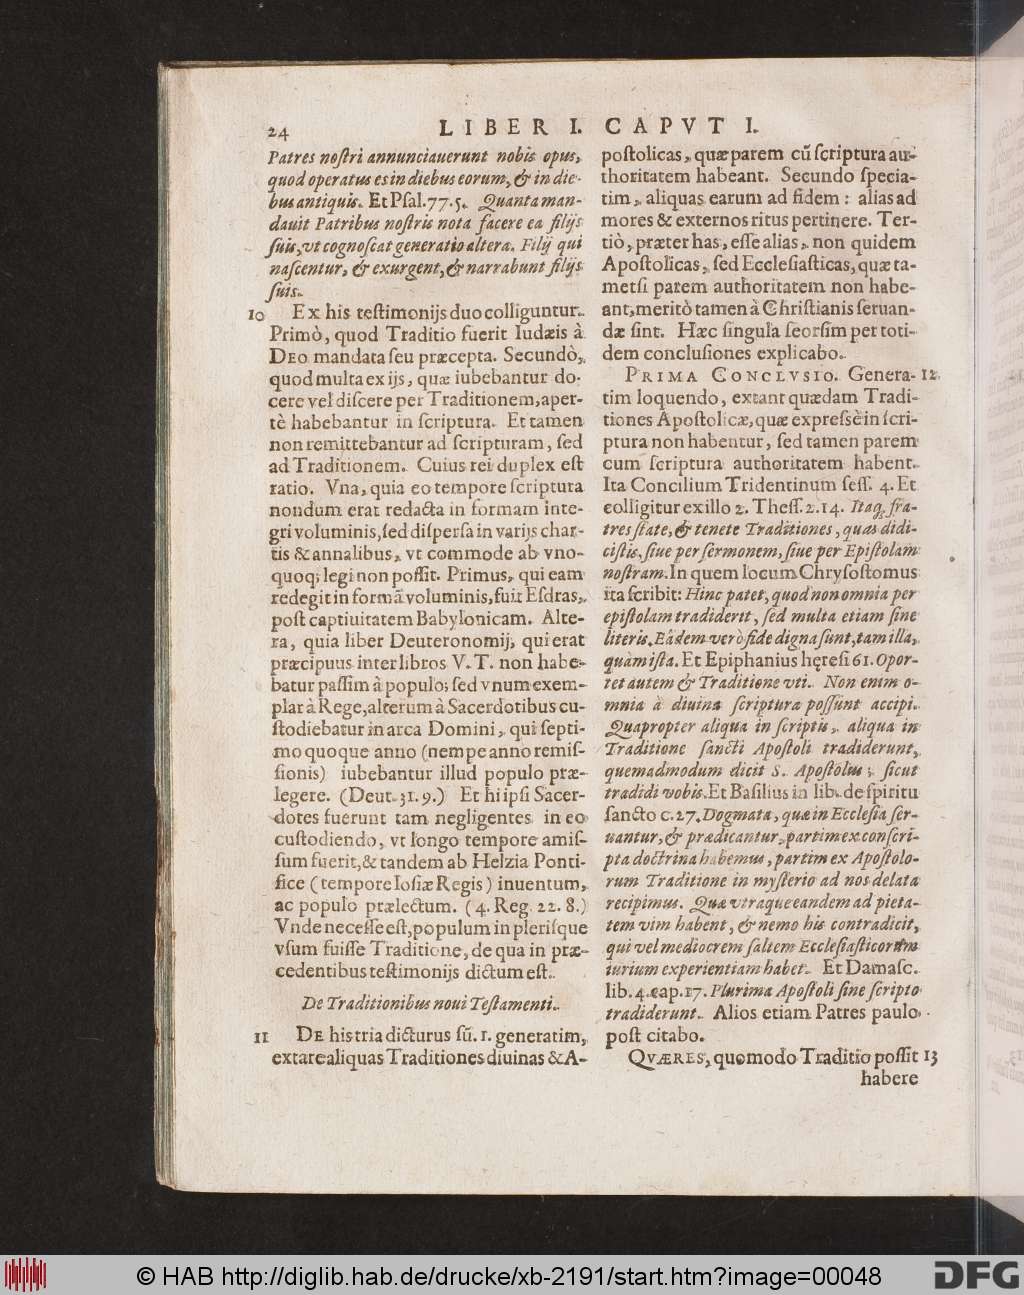 24
LIBER I. CAPVT I.
Patres nostri annunciauerunt nobis opus,
quod operatus es in diebus eorum, & in die-
bus antiquis. Et Psal. 77. 5. Quanta man-
dauit Patribus nostris nota facere ea filijs
suis, vt cognoscat generatio altera. Filij qui
nascentur, & exurgent, & narrabunt filijs
suis.
10 Ex his testimonijs duo colliguntur.
Primò, quod Traditio fuerit Iudæis à
DEO mandata seu præcepta. Secundò,
quod multa ex ijs, quæ iubebantur do-
cere vel discere per Traditionem, aper-
tè habebantur in scriptura. Et tamen
non remittebantur ad scripturam, sed
ad Traditionem. Cuius rei duplex est
ratio. Vna, quia eo tempore scriptura
nondum erat redacta in formam inte-
gri voluminis, sed dispersa in varijs char-
tis & annalibus, vt commode ab vno-
quoq; legi non possit. Primus, qui eam
redegit in formã voluminis, fuit Esdras,
post captiuitatem Babylonicam. Alte-
ra, quia liber Deuteronomij, qui erat
præcipuus inter libros V. T. non habe-
batur passim à populo; sed vnum exem-
plar à Rege, alterum à Sacerdotibus cu-
stodiebatur in arca Domini, qui septi-
mo quoque anno (nempe anno remis-
sionis) iubebantur illud populo præ-
legere. (Deut. 31. 9.) Et hi ipsi Sacer-
dotes fuerunt tam negligentes in eo
custodiendo, vt longo tempore amis-
sum fuerit, & tandem ab Helzia Ponti-
fice (tempore Iosiæ Regis) inuentum,
ac populo prælectum. (4. Reg. 22. 8.)
Vnde necesse est, populum in plerisque
vsum fuisse Traditione, de qua in præ-
cedentibus testimonijs dictum est.
De Traditionibus noui Testamenti.
11 DE his tria dicturus sũ. 1. generatim,
extare aliquas Traditiones diuinas & A-
postolicas, quæ parem cũ scriptura au-
thoritatem habeant. Secundo specia-
tim, aliquas earum ad fidem: alias ad
mores & externos ritus pertinere. Ter-
tiò, præter has, esse alias, non quidem
Apostolicas, sed Ecclesiasticas, quæ ta-
metsi parem authoritatem non habe-
ant, meritò tamen à Christianis seruan-
dæ sint. Hæc singula seorsim per toti-
dem conclusiones explicabo.
PRIMA CONCLVSIO. Genera- 12
tim loquendo, extant quædam Tradi-
tiones Apostolicæ, quæ expressè in scri-
ptura non habentur, sed tamen parem
cum scriptura authoritatem habent.
Ita Concilium Tridentinum sess. 4. Et
colligitur ex illo 2. Thess. 2. 14. Itaq; fra-
tres state, & tenete Traditiones, quas didi-
cistis, siue per sermonem, siue per Epistolam
nostram. In quem locum Chrysostomus
ita scribit: Hinc patet, quod non omnia per
epistolam tradiderit, sed multa etiam sine
literis. Eâdem verò fide digna sunt, tam illa,
quàm ista. Et Epiphanius hęresi 61. Opor-
tet autem & Traditione vti. Non enim o-
mnia à diuina scriptura possunt accipi.
Quapropter aliqua in scriptis, aliqua in
Traditione sancti Apostoli tradiderunt,
quemadmodum dicit S. Apostolus; sicut
tradidi vobis. Et Basilius in lib. de spiritu
sancto c. 27. Dogmata, quæ in Ecclesia ser-
uantur, & prædicantur, partim ex conscri-
pta doctrina habemus, partim ex Apostolo-
rum Traditione in mysterio ad nos delata
recipimus. Quæ vtraque eandem ad pieta-
tem vim habent, & nemo his contradicit,
qui vel mediocrem saltem Ecclesiasticorum
iurium experientiam habet. Et Damasc.
lib. 4. cap. 17. Plurima Apostoli sine scripto
tradiderunt. Alios etiam Patres paulo
post citabo.
QVÆRES, quomodo Traditio possit 13
habere
© HAB http://diglib.hab.de/drucke/xb-2191/start.htm?image=00048
DFG